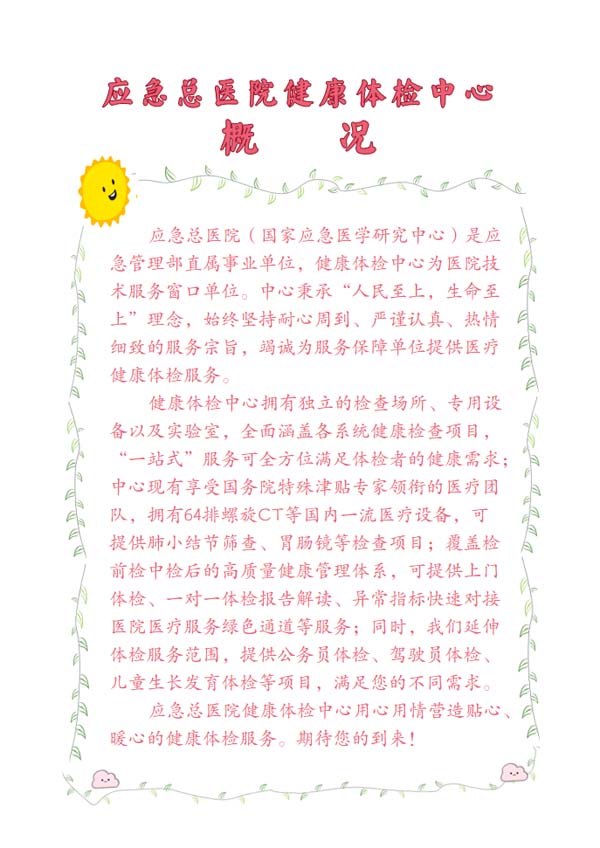 应急总医院健康体检中心
概 况
应急总医院（国家应急医学研究中心）是应
急管理部直属事业单位，健康体检中心为医院技
术服务窗口单位。中心秉承“人民至上，生命至
上”理念，始终坚持耐心周到、严谨认真、热情
细致的服务宗旨，竭诚为服务保障单位提供医疗
健康体检服务。
健康体检中心拥有独立的检查场所、专用设
备以及实验室，全面涵盖各系统健康检查项目，
“一站式”服务可全方位满足体检者的健康需求；
中心现有享受国务院特殊津贴专家领衔的医疗团
队，拥有64排螺旋CT等国内一流医疗设备，可
提供肺小结节筛查、胃肠镜等检查项目；覆盖检
前检中检后的高质量健康管理体系，可提供上门
体检、一对一体检报告解读、异常指标快速对接
医院医疗服务绿色通道等服务；同时，我们延伸
体检服务范围，提供公务员体检、驾驶员体检、
儿童生长发育体检等项目，满足您的不同需求。
应急总医院健康体检中心用心用情营造贴心、
暖心的健康体检服务。期待您的到来！